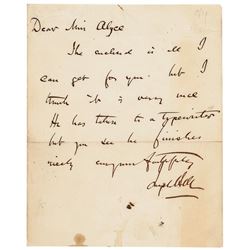 Dear Miss Alyce
The enclosed is all I
can get for you. but I
think it is very nice
He has taken to a typewriter
but you see he finishes
nicely anyhow